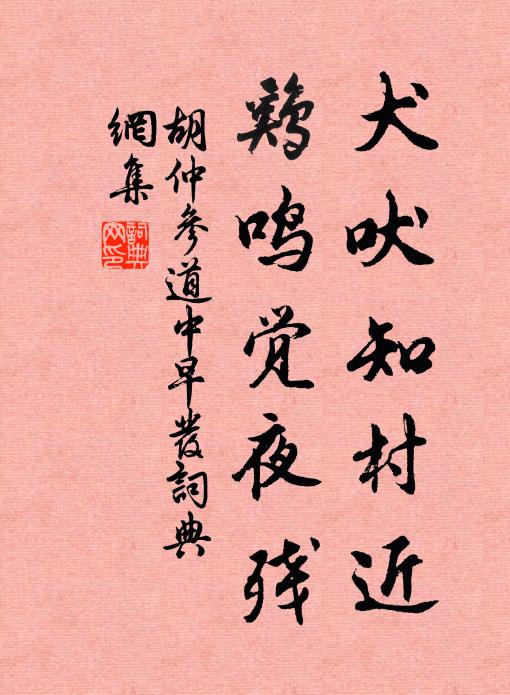 犬吠知村近
鷄鸣觉夜残
胡仲参道中早發詞典
網集
詞典
网印